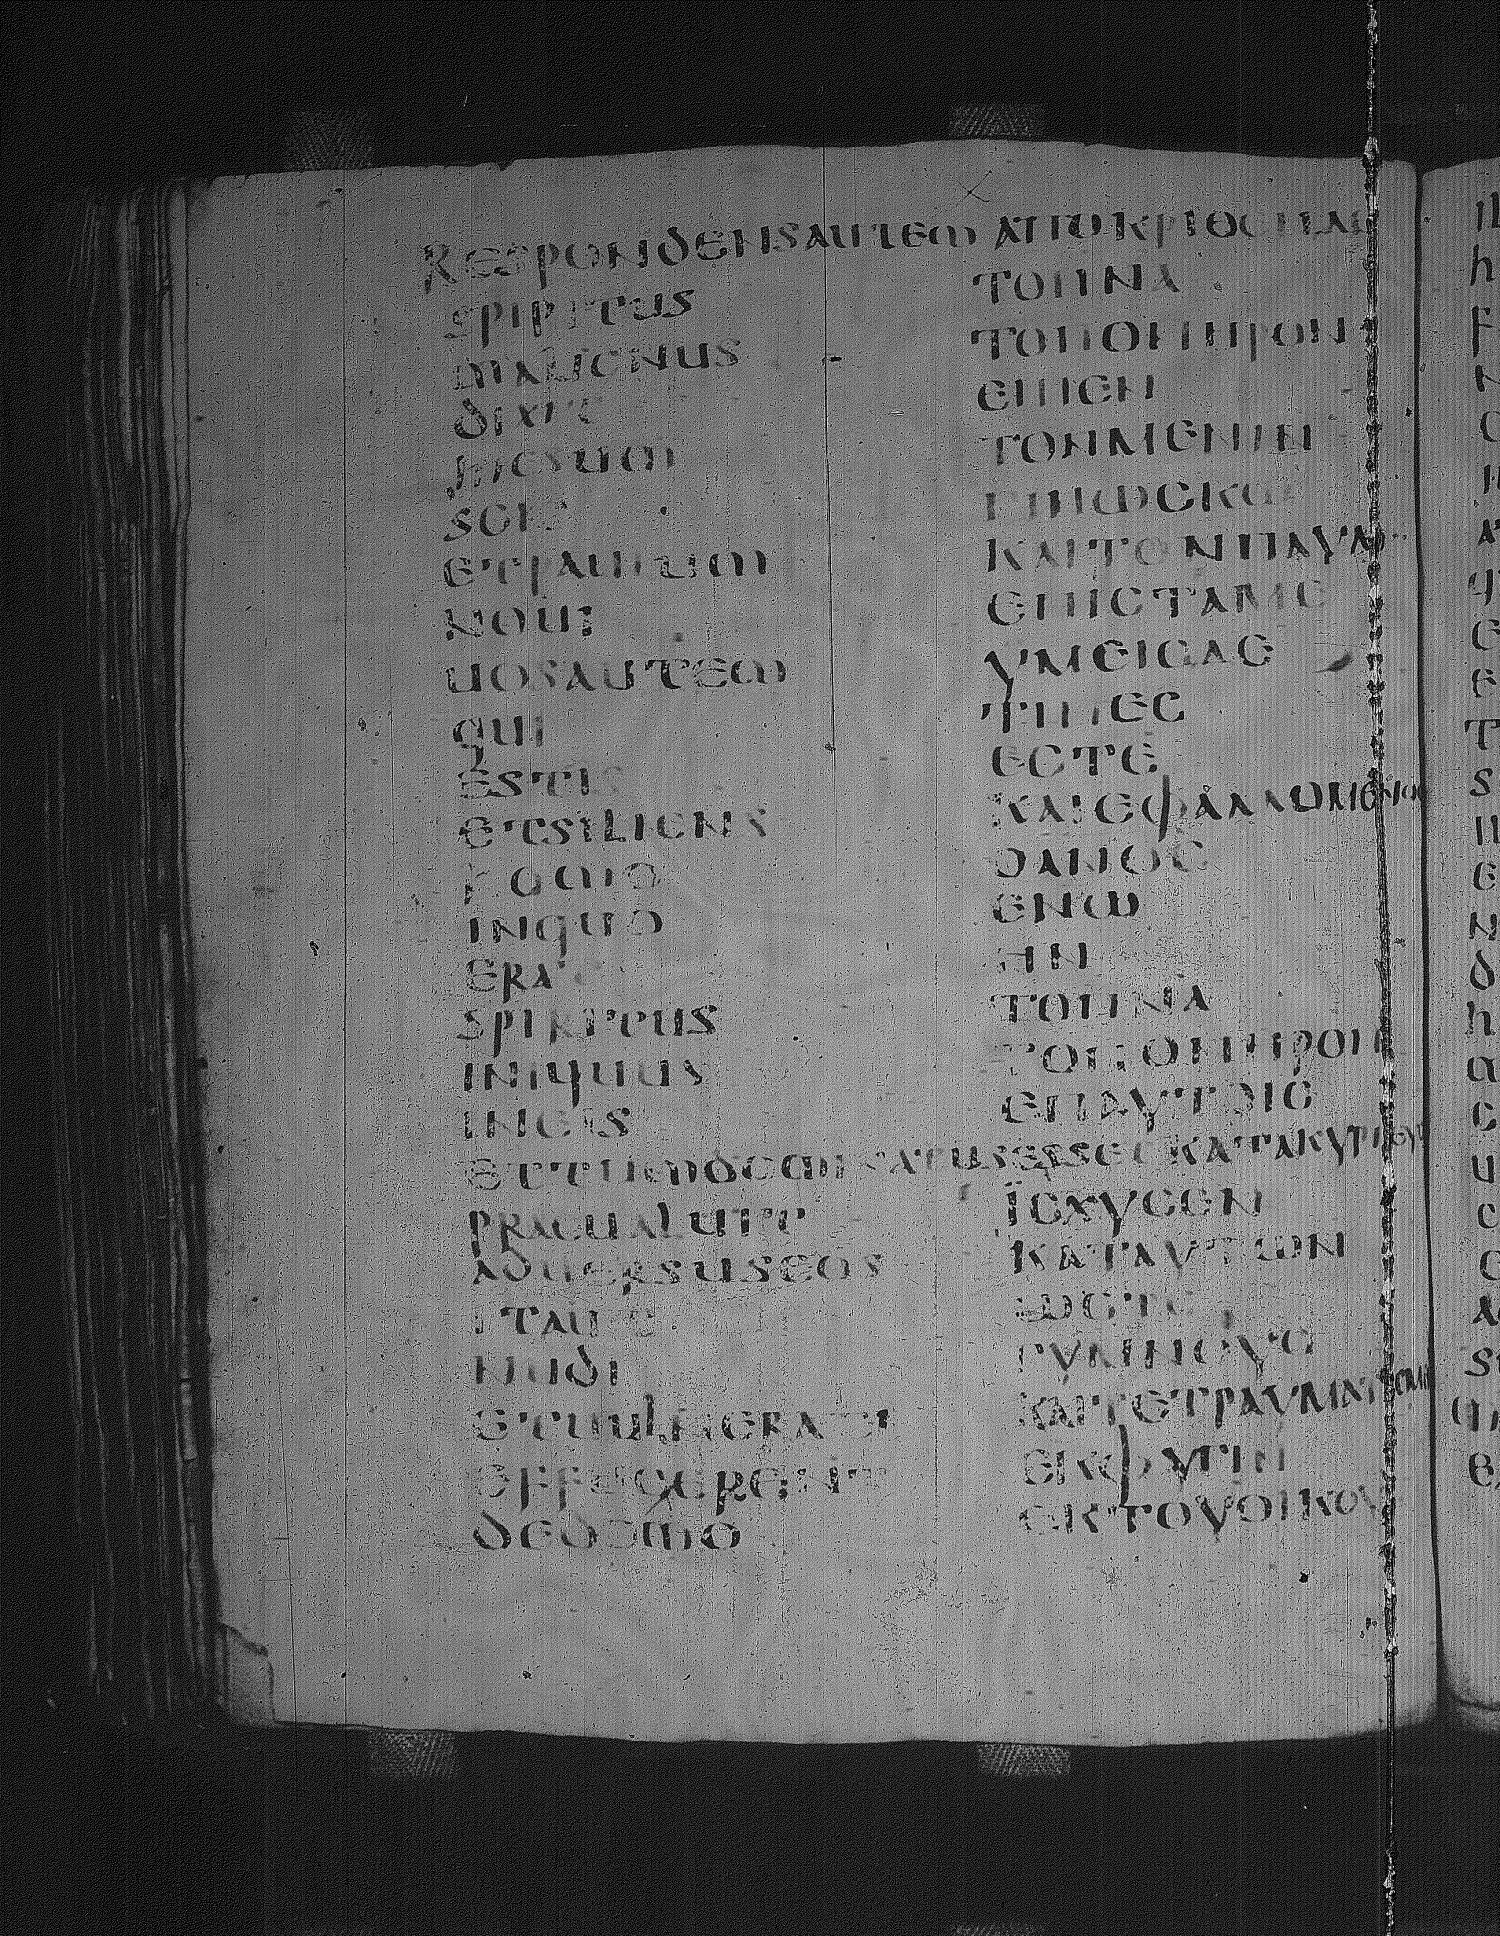 Respondensautem
spiritus
malignus
dixit
ihesum
scio
etpaulum
noui
uosautem
qui
estis
etsiliens
homo
inquo
erat
spiritus
iniquus
ineis
praeualuit
aduersuseos
itaut
nudi
etuulnerati
effugerent
dedomo
ΑΠΟΚΡΙΘΕΝΔΕ
ΤΟΠΝΑ
ΤΟΠΟΝΗΡΟΝ
ΕΙΠΕΝ
ΤΟΝΜΕΝΙΗΝ
ΓΙΝΩΣΚΩ
ΚΑΙΤΟΝΠΑΥΛΟΝ
ΕΠΙСΤΑΜΕ
ΥΜΕΙСΔΕ
ΤΙΝΕС
ΕСΤΕ
ΚΑΙΕΦΑΛΛΟΜΕΝΟС
ΟΑΝΟС
ΕΝΩ
ΗΝ
ΤΟΠΝΑ
ΤΟΠΟΝΗΡΟΝ
ΕΠΑΥΤΟΙС
ΙСΧΥСΕΝ
ΚΑΤΑΥΤΩΝ
ΩСΤΕ
ΓΥΜΝΟΥС
ΕΚΦΥΓΙΝ
ΕΚΤΟΥΟΙΚΟΥ